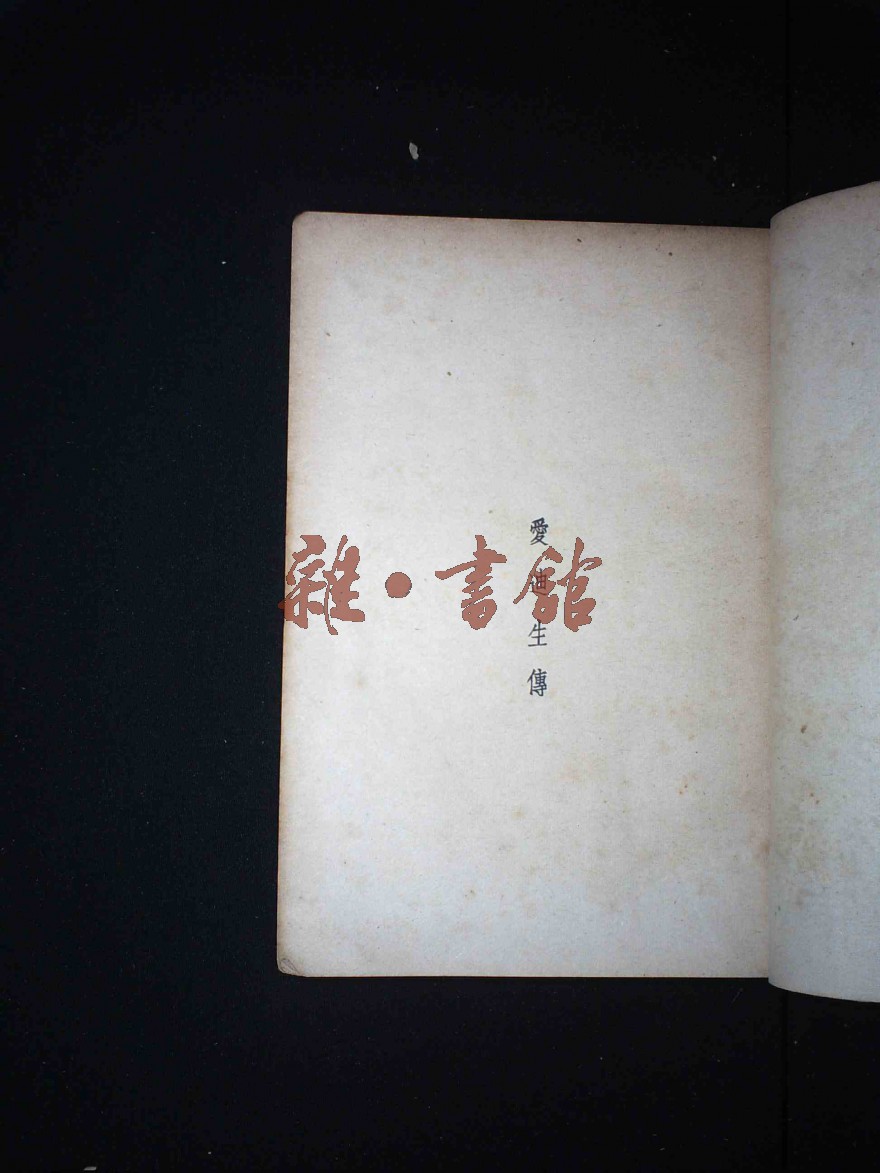 愛迪生傳
雜·書館